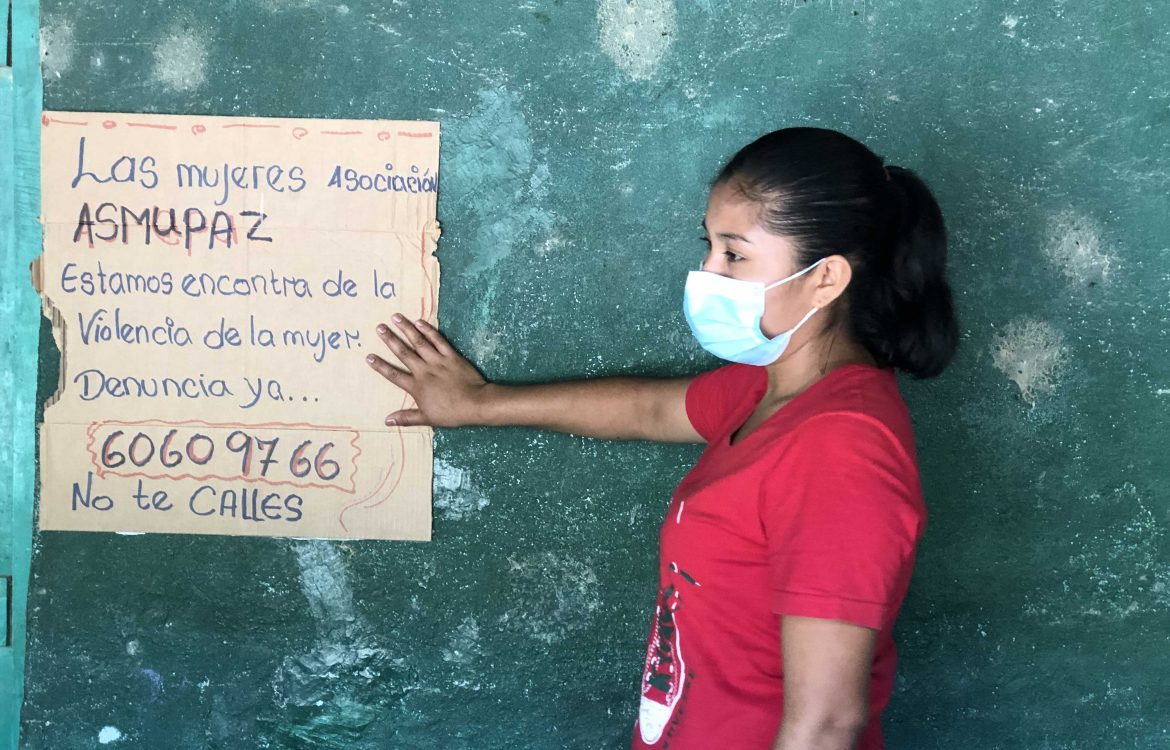 Las mujeres Asociación
ASMUPAZ
Estamos encontra de la
Violencia de la mujer.
Denuncia ya...
6060 97 66
No te CALLES